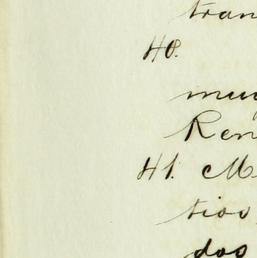 tran
40.
muy
Ren
41. M
tioo
doo